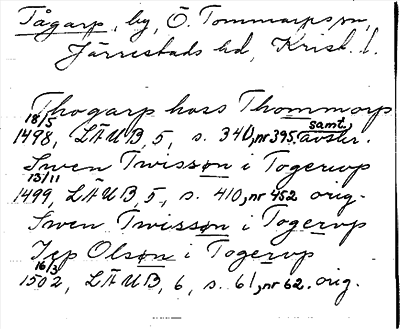 Tågarp, by, Ö. Tommarps sn,
Järrestads hd, Krist. l.
Thogarp hoss Thommarp
18/5 1498, LÄUB, 5, s. 340, nr 395. samt. avskr.
Swen Twisson i Togerup
13/11 1499, LÄUB, 5, s. 410, nr 452 orig.
Swen Twisson i Togerup
Jep Olson i Togerup
16/3 1502, LÄUB, 6, s. 61, nr 62. orig.